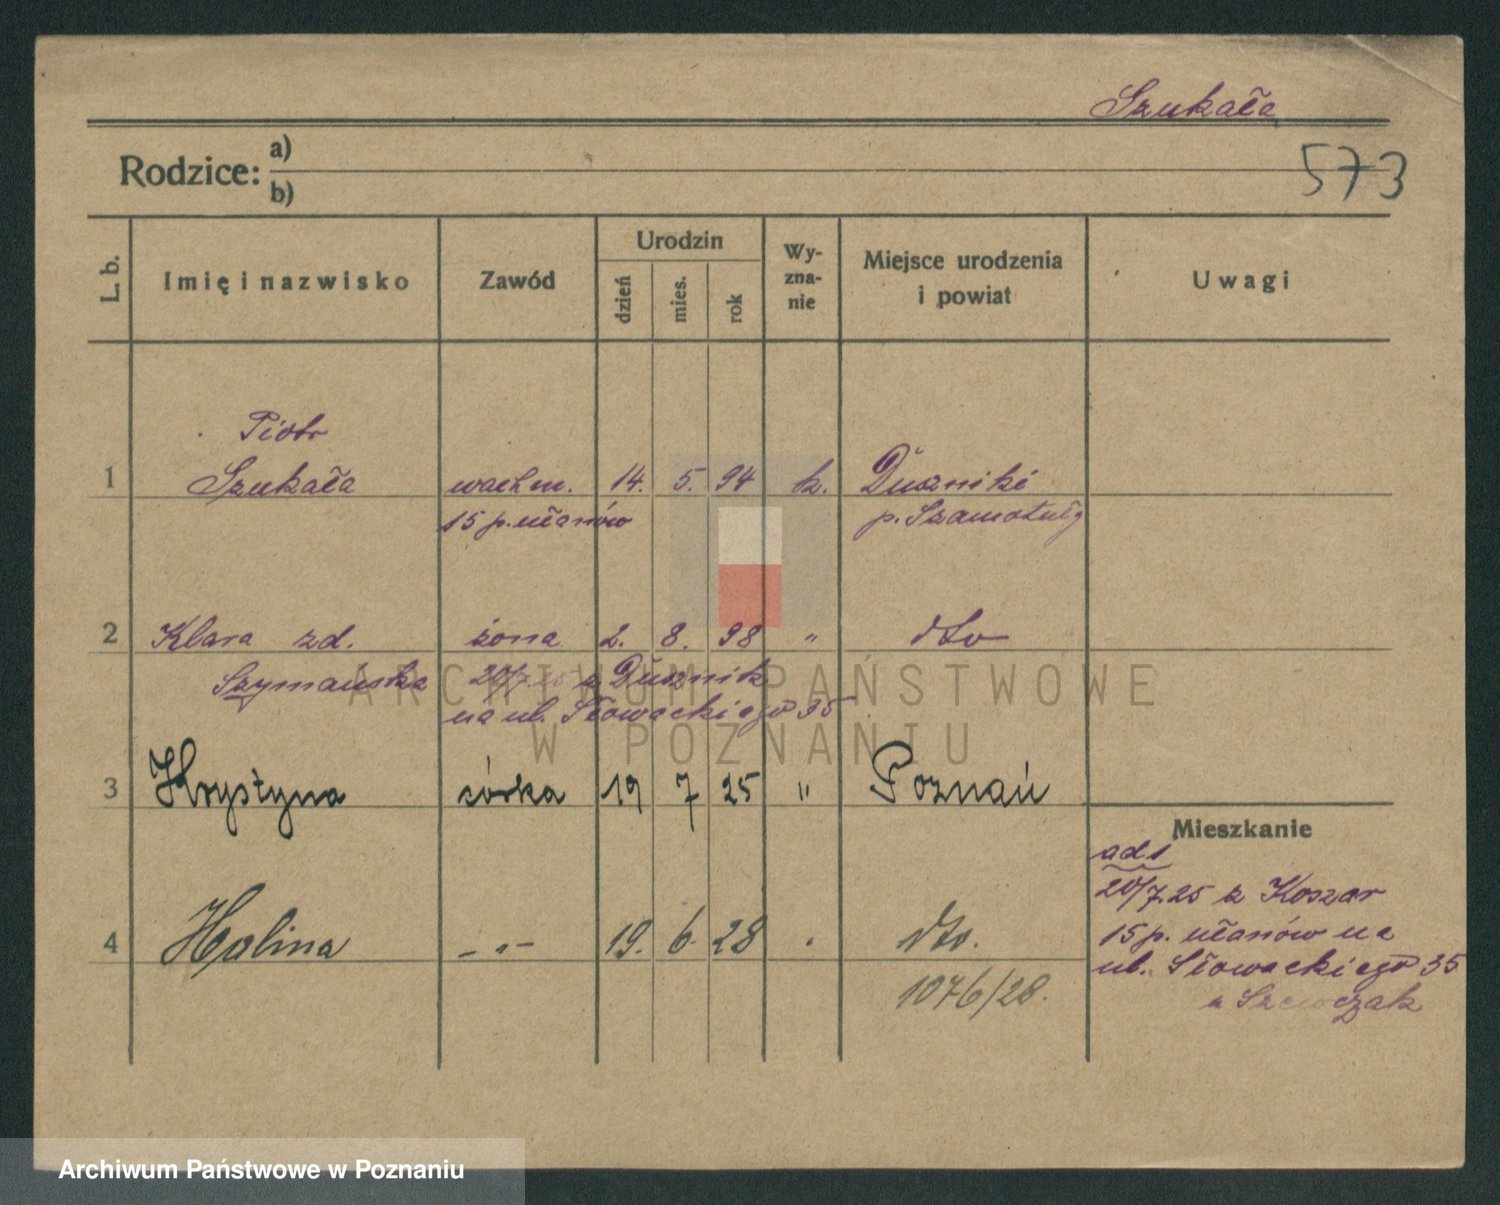 Szukała
573
Rodzice: a)
b)
L. b.
Imię i nazwisko
Zawód
Urodzin
dzień
mies.
rok
Wy-
zna-
nie
Miejsce urodzenia
i powiat
Uwagi
Piotr
1 Szukała wachm. 14. 5. 94 k. Duszniki
15 p. ułanów p. Szamotuły
2 Klara zd. żona 2. 8. 98 " dto
Szymańska 20/7.25 z Dusznik
na ul. Słowackiego 35
3 Krystyna córka 19 7 25 " Poznań
Mieszkanie
ad 1
20/7.25 z Koszar
4 Halina – " – 19. 6. 28 " dto.
15 p. ułanów na
ul. Słowackiego 35
1076/28.
u Szewczak
ARCHIWUM PAŃSTWOWE
W POZNANIU
Archiwum Państwowe w Poznaniu